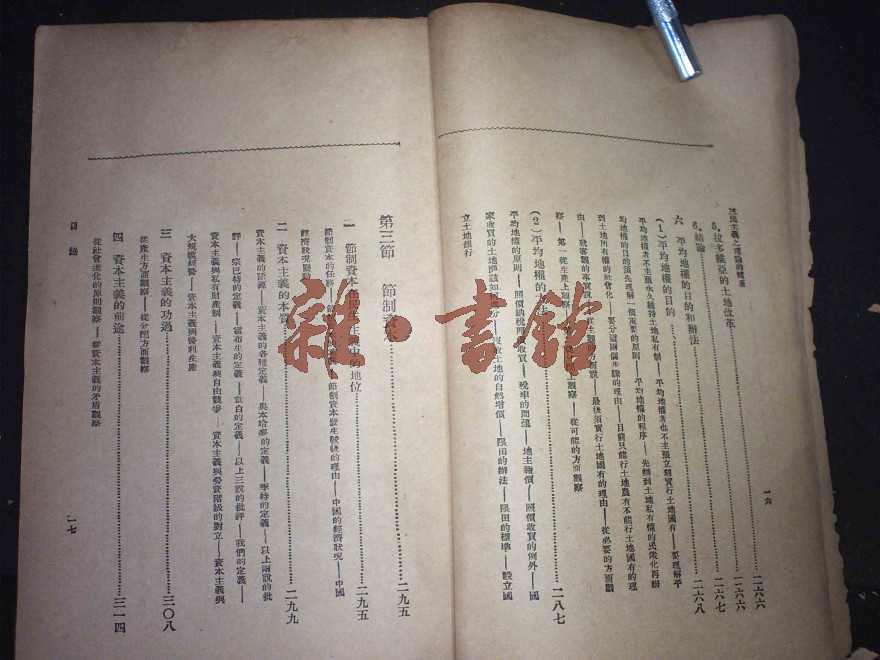 三民主義之理論的體系
一六
5. 拉多維亞的土地改革……二六六
6. 結論……二六七
六 平均地權的目的和辦法……二六八
(1) 平均地權的目的
平均地權者不主張永久維持土地私有制——平均地權者也不主張立刻實行土地國有——要理解平
均地權的目的須先理解一個重要的原則——平均地權的程序——先辦到土地私有權的民衆化再辦
到土地所有權的社會化——要分這兩個步驟的理由——目前只能行土地農有不能行土地國有的理
由——就客觀的事實說——從主觀的方面說——最後須實行土地國有的理由——從必要的方面觀
察——第一從生產上觀察——從可能的方面觀察
(2) 平均地權的辦法……二八七
平均地權的原則——照價納稅照價收買——稅率的問題——地主報價——照價收買的例外——國
家收買的土地應該如何——土地的自然增價——限田的辦法——限田的標準——設立國
立土地銀行
第三節 節制資本……二九五
一 節制資本在民生主義中的地位……二九五
節制資本的任務——節制資本發生較後的理由——中國的經濟狀況——中國
經濟狀況
二 資本主義的本質……二九九
資本主義的語源——資本主義的各種定義——季特的定義——以上兩說的批
評——宗巴特的定義——霍布生的定義——以上三說的批評——我們的定義——
資本主義與私有財產制——資本主義與自由競爭——資本主義與勞資階級的對立——資本主義與
大規模經營——資本主義與營利生產
三 資本主義的功過……三〇八
從產生方面觀察——從分配方面觀察
四 資本主義的前途……三一四
從社會進化的原則觀察——從資本主義的矛盾觀察
目錄
一七
雜·書館